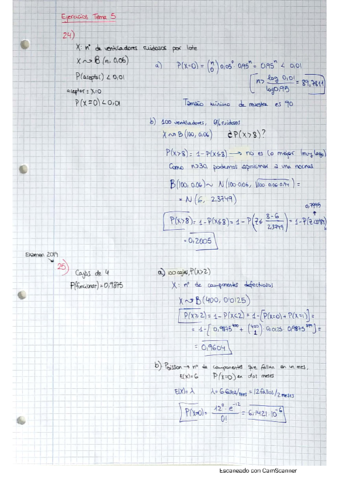 Ejercicios Tema 5
24)
X nº de ventiladores ruidosos por lote
X ~ B(n, 0.06)
P(aceptar) < 0,01
aceptar = X=0
P(X=0) < 0,01
a) P(X=0) = (n 0) 0,05⁰ 0,95ⁿ = 0,95ⁿ < 0,01
n > log 0,01 / log 0.95 = 89,7811
Tamaño mínimo de muestra es 90
b) 100 ventiladores,
X ~ B(100, 0.06) ¿P(X>8)?
P(X>8) = 1 - P(X≤8) → no es lo mejor (muy largo)
Como n>30 podemos aproximar a una normal
B(100, 0.06) ~ N(100·0.06, √100·0.06·0.94) =
= N(6, 2.3749)
0.7995
P(X>8) = 1 - P(X≤8) = 1 - P(Z≤ 8-6 / 2.3749) =
= 0,2005
Examen 2019
25)
Cajas de 4
P(funcionar) = 0,9875
a) 100 cajas, P(X≥2)
X = nº de componentes defectuosos
X ~ B(400, 0'0125)
P(X≥2) = 1 - P(X<2) = 1 - [P(X=0) + P(X=1)] =
= 0.9604
b) Poisson → nº de componentes que fallan en un mes.
E(X)=6 P(X=0) en dos meses
E(X) = λ λ = 6 fallos/mes = 12 fallos/2 meses
P(X=0) = 12⁰ · e⁻¹² / 0! = 6,1421·10⁻⁶
Escaneado con CamScanner